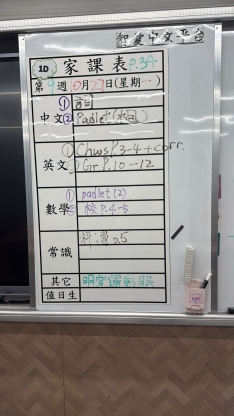 中文平台
1D 家課表 P.34
第 9 週 10月27日(星期一)
中文
②Padlet(
英文
① Chws P.3-4 + corr.
② Gr P.10-12
數學
① padlet(2)
② 校 P.4-5
常識
科學 p.5
其它
明穿運動服
值日生